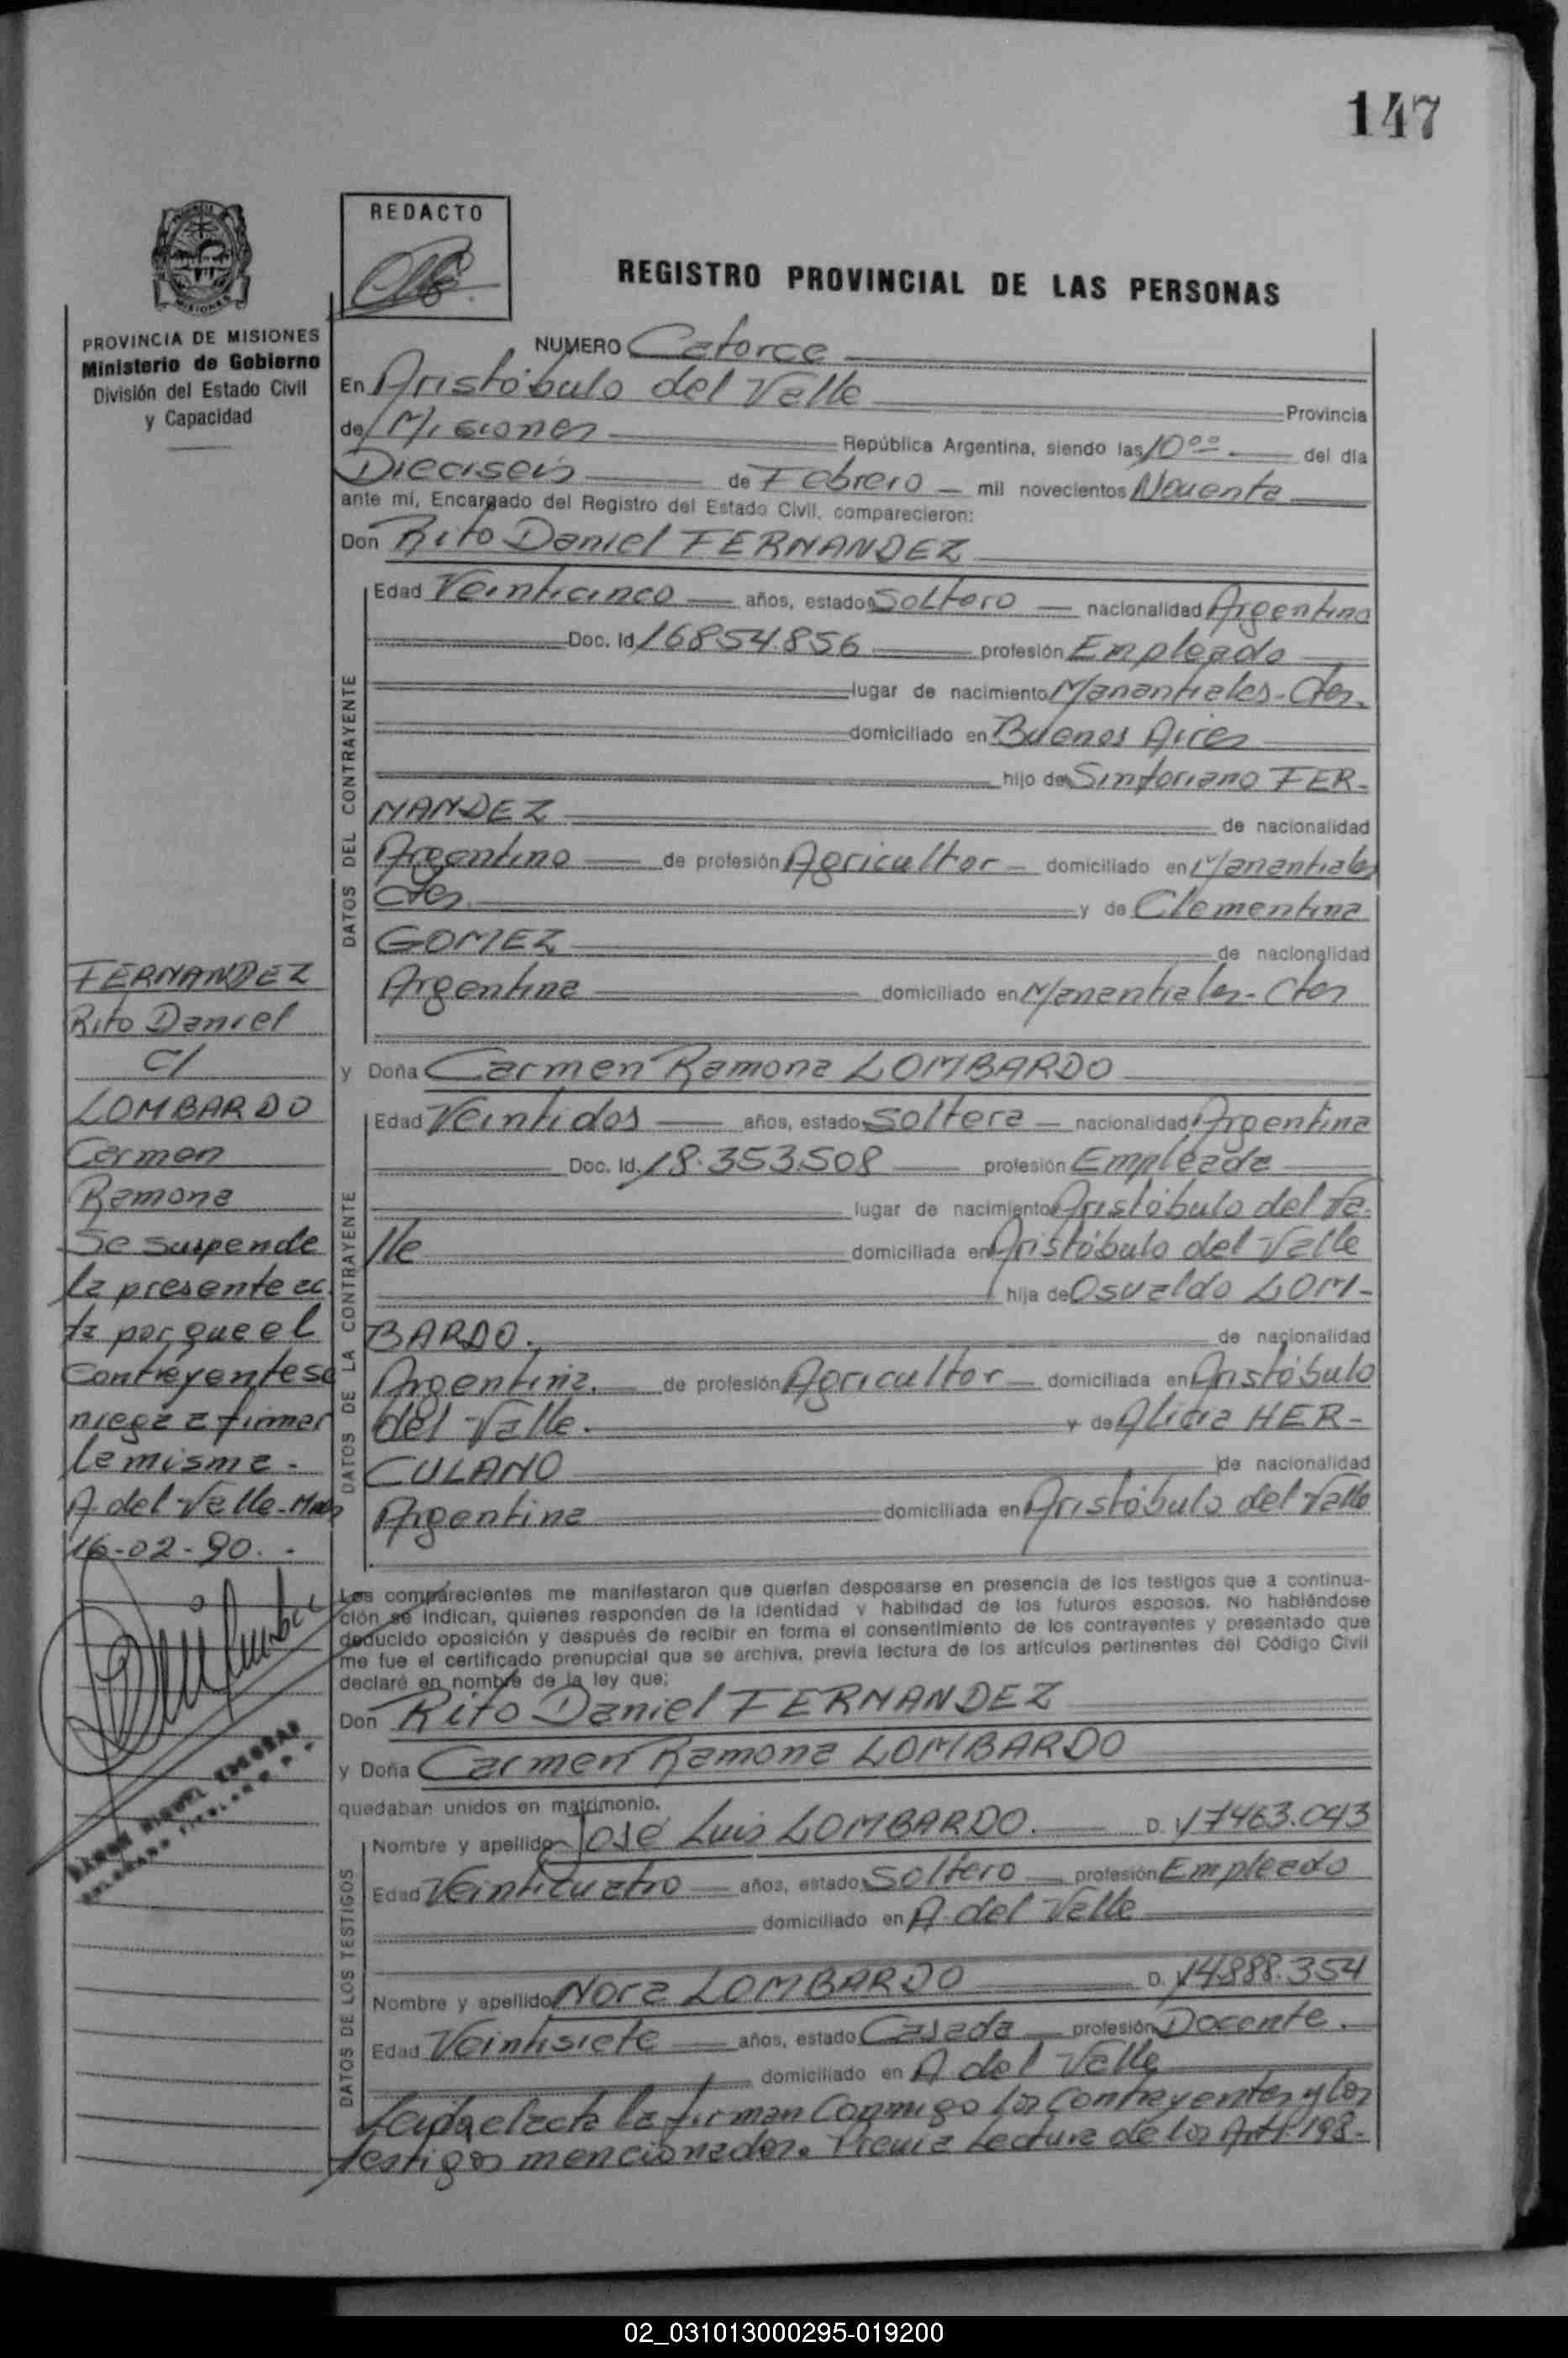 147
REDACTO
REGISTRO PROVINCIAL DE LAS PERSONAS
MISIONES
PROVINCIA DE MISIONES
Ministerio de Gobierno
División del Estado Civil
y Capacidad
NUMERO Catorce
En Aristóbulo del Valle Provincia
de Misiones República Argentina, siendo las 10°° del día
Dieciseis de Febrero mil novecientos Noventa
ante mi, Encargado del Registro del Estado Civil, comparecieron:
Don Rito Daniel FERNANDEZ
DATOS DEL CONTRAYENTE
Edad Veinticinco años, estado Soltero nacionalidad Argentino
Doc. Id 16854.856 profesión Empleado
lugar de nacimiento Manantiales-Ctes.
domiciliado en Buenos Aires
hijo de Sinforiano FER-
NANDEZ de nacionalidad
Argentino de profesión Agricultor domiciliado en Manantiales
Ctes. y de Clementina
GOMEZ de nacionalidad
Argentina domiciliado en Manantiales-Ctes
y Doña Carmen Ramona LOMBARDO
DATOS DE LA CONTRAYENTE
Edad Veintidos años, estado Soltera nacionalidad Argentina
Doc. Id. 18.353.508 profesión Empleada
lugar de nacimiento Aristóbulo del Va-
lle domiciliada en Aristóbulo del Valle
hija de Osvaldo LOM-
BARDO. de nacionalidad
Argentina. de profesión Agricultor domiciliada en Aristóbulo
del Valle. y de Alicia HER-
CULANO de nacionalidad
Argentina domiciliada en Aristóbulo del Valle
FERNANDEZ
Rito Daniel
C/
LOMBARDO
Carmen
Ramona
Se suspende
la presente ac
ta por que el
Contrayente se
niega a firmar
la misma.
A. del Valle-Mnes
16-02-90.
Los comparecientes me manifestaron que querían desposarse en presencia de los testigos que a continua-
ción se indican, quienes responden de la identidad y habilidad de los futuros esposos. No habiéndose
deducido oposición y después de recibir en forma el consentimiento de los contrayentes y presentado que
me fue el certificado prenupcial que se archiva, previa lectura de los artículos pertinentes del Código Civil
declaré en nombre de la ley que:
Don Rito Daniel FERNANDEZ
y Doña Carmen Ramona LOMBARDO
quedaban unidos en matrimonio.
DATOS DE LOS TESTIGOS
Nombre y apellido José Luis LOMBARDO. D. 17463.043
Edad Veinticuatro años, estado Soltero profesión Empleado
domiciliado en A. del Valle
Nombre y apellido Nora LOMBARDO D. 14.888.354
Edad Veintisiete años, estado Casada profesión Docente.
domiciliado en A del Valle
Leida el acta la firman Conmigo los Contrayentes y los
testigos mencionados. Previa Lectura de los Art. 198-
RAMON MIGUEL ESCOBAR
02_031013000295-019200